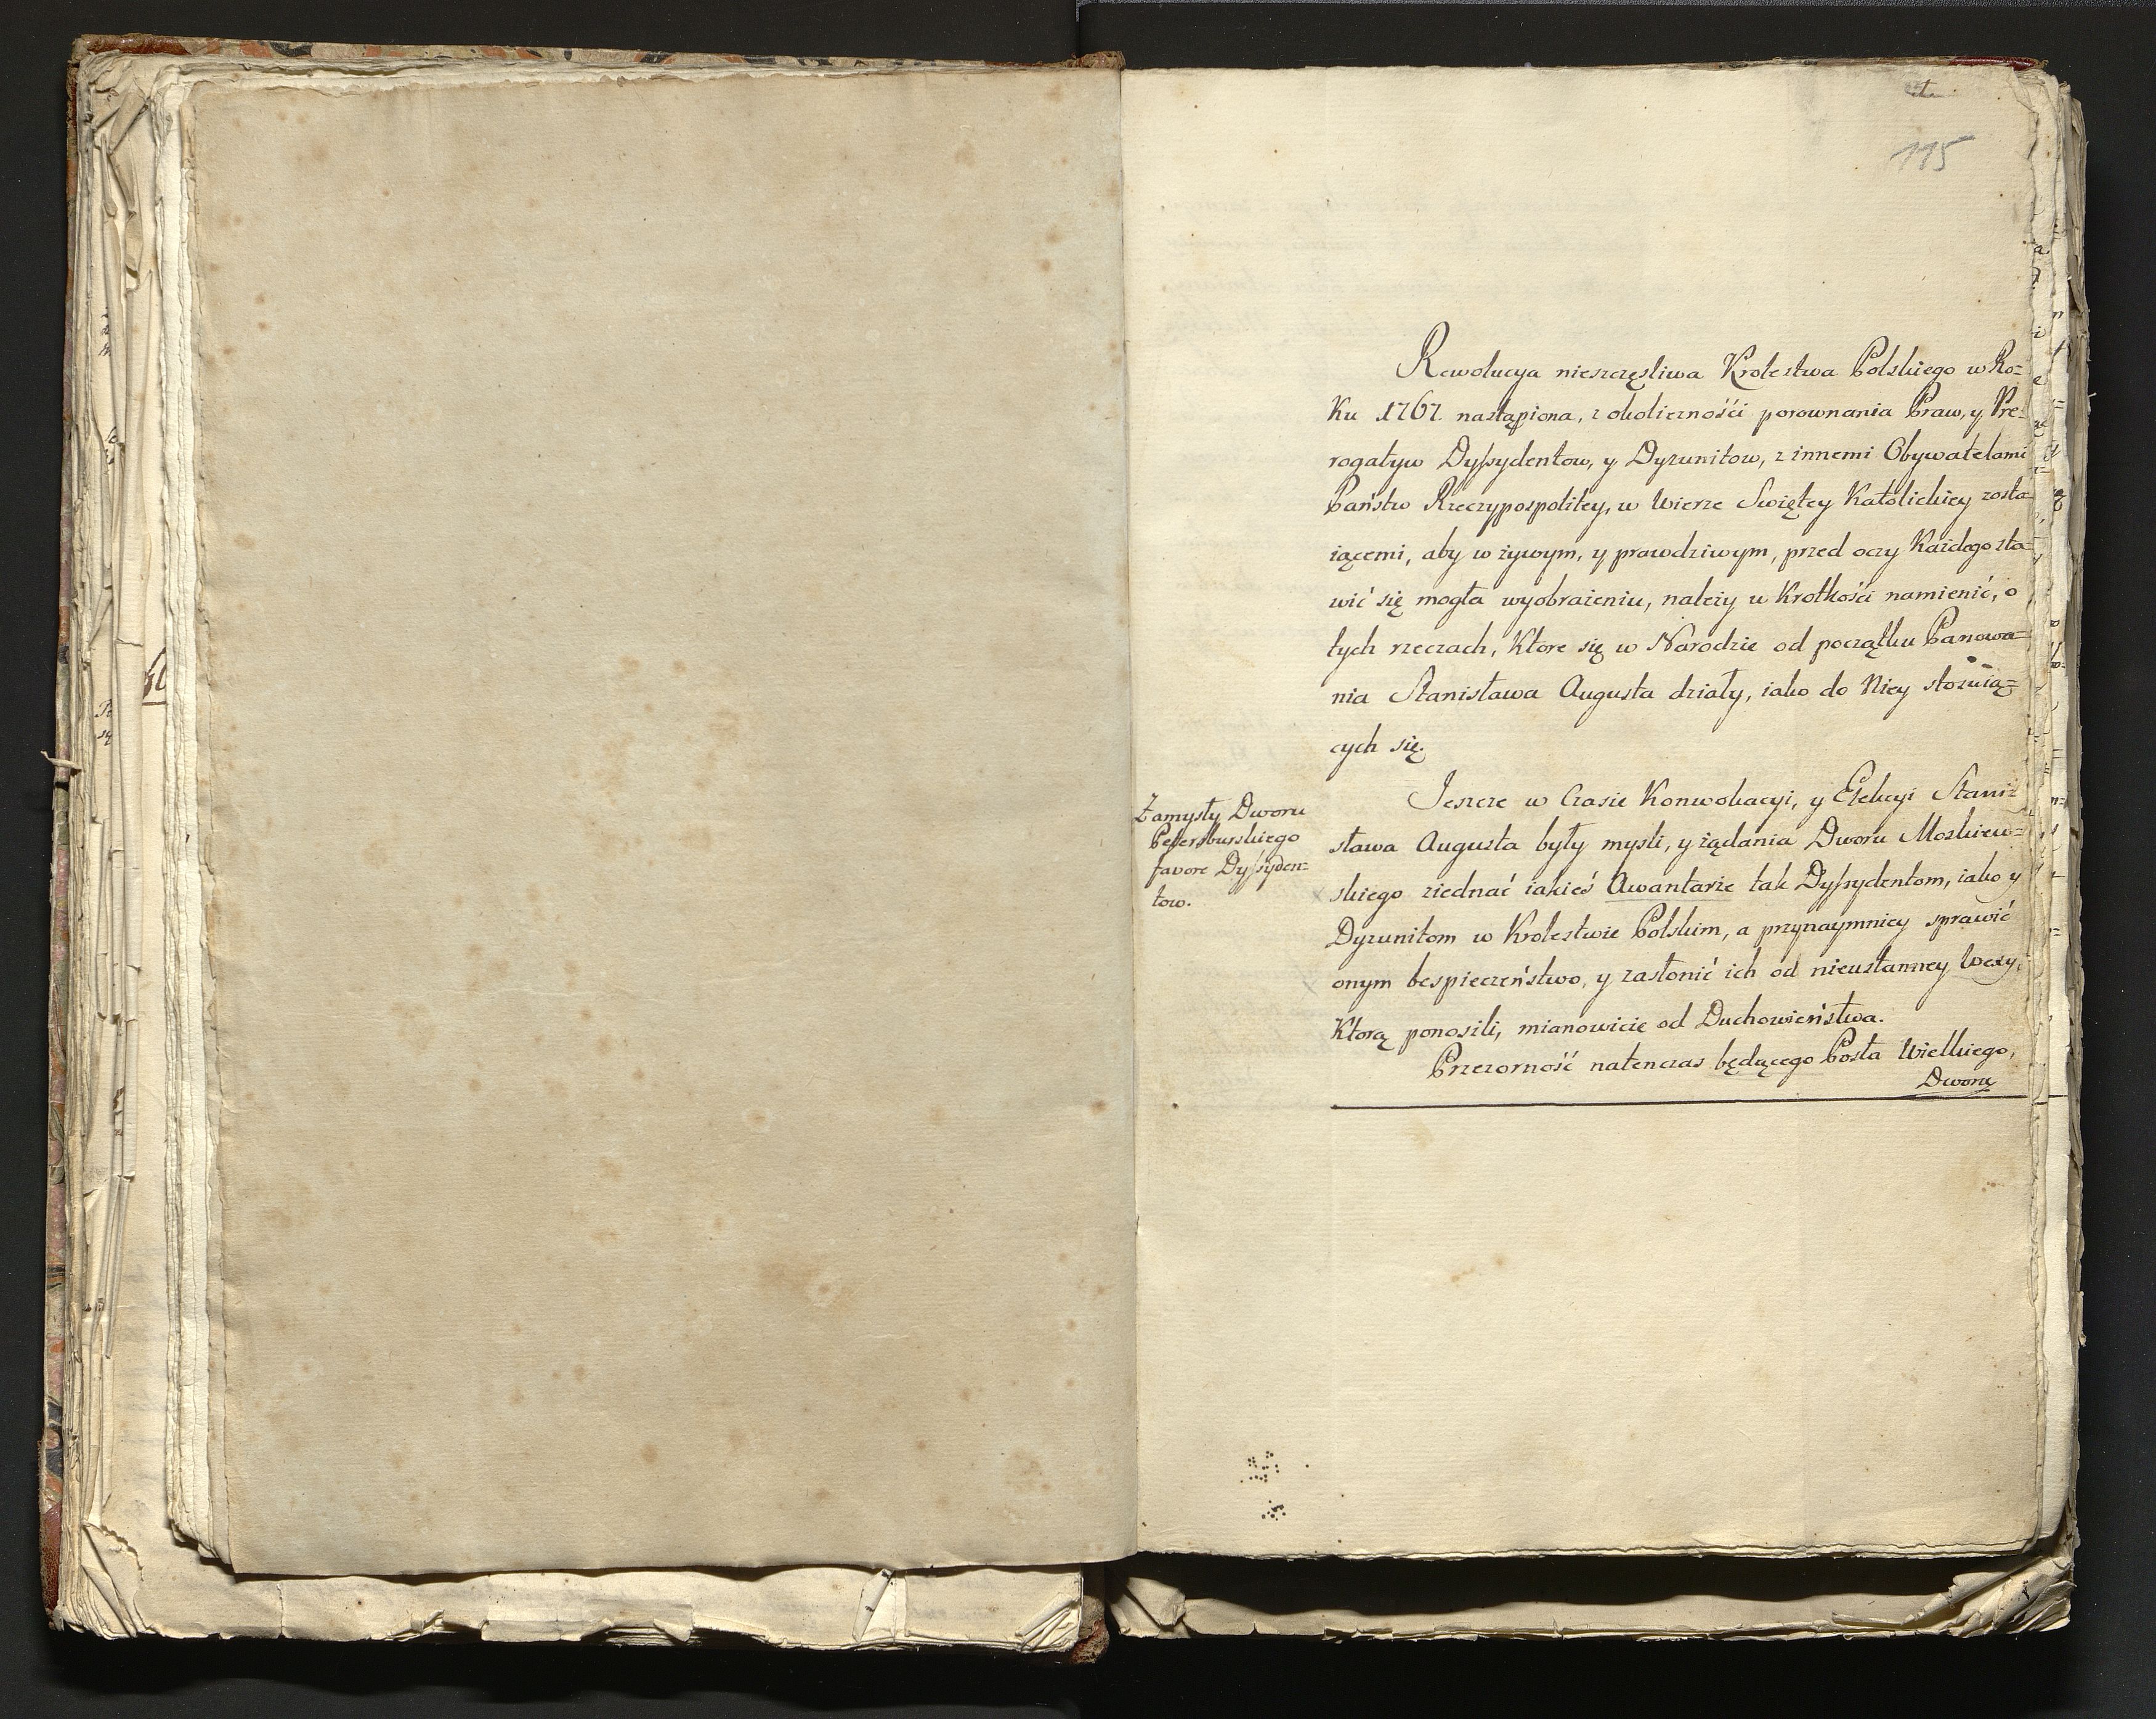 115
Rewolucya nieszczęsliwa Krolestwa Polskiego w Ro=
ku 1767. nastąpiona, z okolicznośći porownania Praw, y Pre=
rogatyw Dyssydentow, y Dyzunitow, z innemi Obywatelami
Państw Rzeczypospolitey, w Wierze Swiętey Katolickiey zosta=
iącemi, aby w żywym, y prawdziwym, przed oczy Każdego sta=
wić się mogła wyobrażeniu, należy w Krotkośći namienić, o
tych rzeczach, Ktore się w Narodzie od początku Panowa=
nia Stanisława Augusta działy, iako do Niey stosuią=
cych się.
Zamysły Dworu
Petersburskiego
favore Dyssyden=
tow.
Jeszcze w Czasie Konwokacyi, y Elekcyi Stani=
sława Augusta były mysli, y żądania Dworu Moskiew=
skiego ziednać iakieś Awantaże tak Dyssydentom, iako y
Dyzunitom w Krolestwie Polskim, a przynaymniey sprawić
onym bespieczeństwo, y zasłonić ich od nieustanney Wexy,
Ktorą ponosili, mianowicie od Duchowieństwa.
Przezorność natenczas będącego Posła Wielkiego,
Dworu